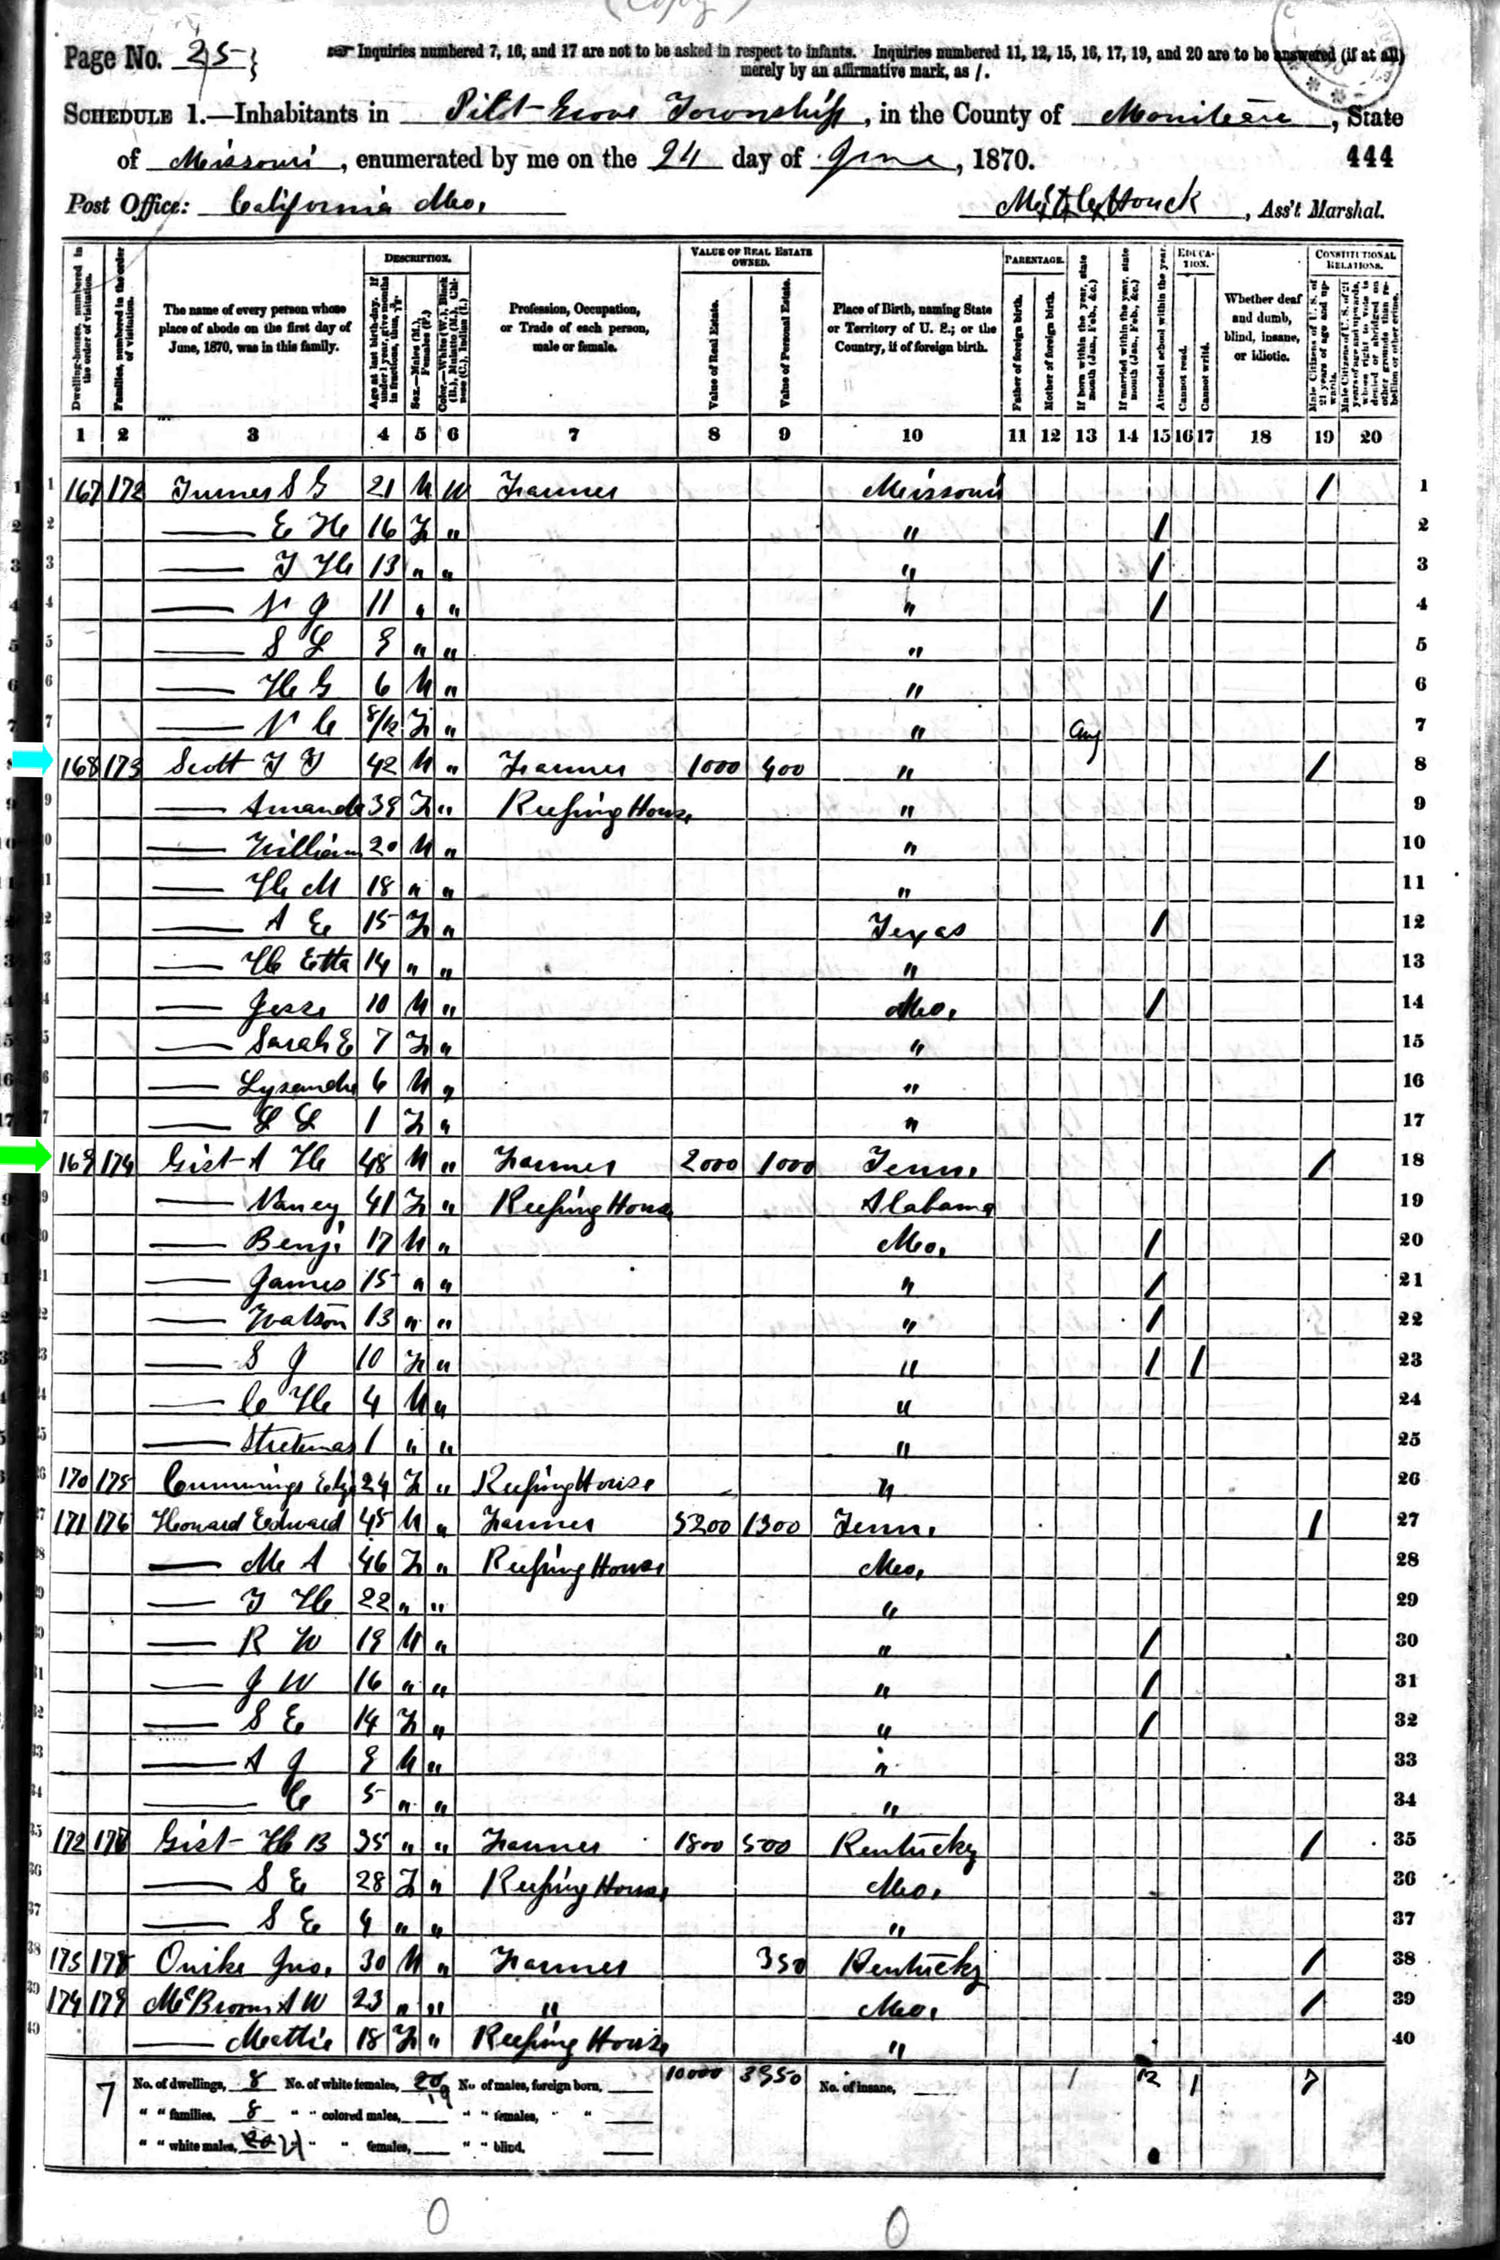 (Copy)
Page No. 25
Inquiries numbered 7, 16, and 17 are not to be asked in respect to infants. Inquiries numbered 11, 12, 15, 16, 17, 19, and 20 are to be answered (if at all)
merely by an affirmative mark, as /.
SCHEDULE 1.—Inhabitants in Pilot Grove Township, in the County of Moniteau, State
of Missouri, enumerated by me on the 24 day of June, 1870. 444
Post Office: California Mo. Houck, Ass't Marshal.
Dwelling-houses, numbered in the order of visitation.
Families, numbered in the order of visitation.
The name of every person whose place of abode on the first day of June, 1870, was in this family.
DESCRIPTION.
Age at last birth-day. If under 1 year, give months in fractions, thus, 3/12.
Sex.—Males (M.), Females (F.)
Color.—White (W.), Black (B.), Mulatto (M.), Chinese (C.), Indian (I.)
Profession, Occupation, or Trade of each person, male or female.
VALUE OF REAL ESTATE OWNED.
Value of Real Estate.
Value of Personal Estate.
Place of Birth, naming State or Territory of U. S.; or the Country, if of foreign birth.
PARENTAGE.
Father of foreign birth.
Mother of foreign birth.
If born within the year, state month (Jan., Feb., &c.)
If married within the year, state month (Jan., Feb., &c.)
Attended school within the year.
EDUCATION.
Cannot read.
Cannot write.
Whether deaf and dumb, blind, insane, or idiotic.
CONSTITUTIONAL RELATIONS.
Male Citizens of U. S. of 21 years of age and upwards.
Male Citizens of U. S. of 21 years of age and upwards, whose right to vote is denied or abridged on other grounds than rebellion or other crime.
1 2 3 4 5 6 7 8 9 10 11 12 13 14 15 16 17 18 19 20
1 167 172 Turner S G 21 M W Farmer Missouri / 1
2 —— E H 16 F " " / 2
3 —— T H 13 " " " / 3
4 —— N J 11 " " " / 4
5 —— S L 9 " " " 5
6 —— H G 6 M " " 6
7 —— N C 8/12 F " " Aug 7
168 173 Scott T T 42 M " Farmer 1000 400 " / 8
9 —— Amanda 38 F " Keeping House " 9
10 —— William 20 M " " 10
11 —— H M 18 " " " 11
12 —— A E 15 F " Texas / 12
13 —— H Etta 14 " " " 13
14 —— Jesse 10 M " Mo. / 14
15 —— Sarah E 7 F " " 15
16 —— Lysander 6 M " " 16
17 —— L L 1 F " " 17
169 174 Gist A H 48 M " Farmer 2000 1000 Tenn. / 18
19 —— Nancy 41 F " Keeping House Alabama 19
20 —— Benj. 17 M " Mo. / 20
21 —— James 15 " " " / 21
22 —— Watson 13 " " " / 22
23 —— S J 10 F " " / / 23
24 —— C H 4 M " " 24
25 —— 1 " " " 25
26 170 175 Cummings Eliz 24 F " Keeping House " 26
27 171 176 Howard Edward 45 M " Farmer 5200 1300 Tenn. / 27
28 —— M A 46 F " Keeping House Mo. 28
29 —— T H 22 " " " 29
30 —— R W 19 M " " / 30
31 —— J W 16 " " " / 31
32 —— S E 14 F " " / 32
33 —— A J 9 M " " 33
34 —— C 5 " " " 34
35 172 177 Gist H B 35 " " Farmer 1800 500 Kentucky / 35
36 —— S E 28 F " Keeping House Mo. 36
37 —— S E 4 " " " 37
38 173 178 Jno. 30 M " Farmer 350 Kentucky / 38
39 174 179 McBroom A W 23 " " " Mo. / 39
40 —— Mattie 18 F " Keeping House " 40
7 No. of dwellings, 8 No. of white females, 19 No. of males, foreign born, 10000 3950 No. of insane, 1 12 1 7
" " families, 8 " " colored males, " " females, " "
" " white males, 21 " " females, " " blind,
0 0